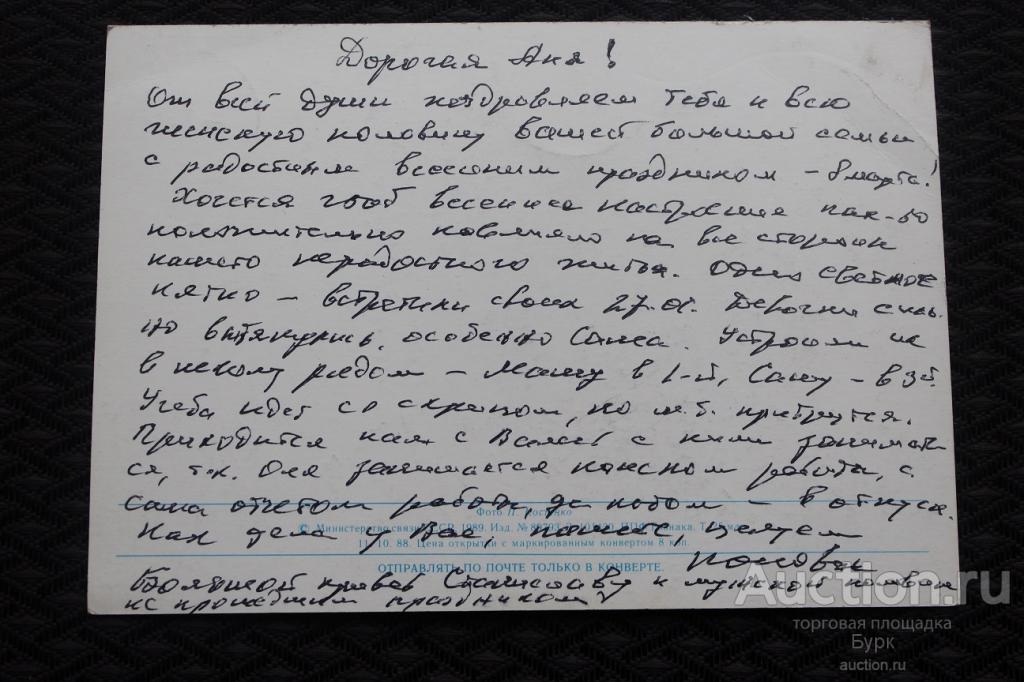 Дорогая Аня!
От всей души поздравляем тебя и всю
женскую половину вашей большой семьи
с радостным весенним праздником – 8 марта!
Хочется чтоб весеннее настроение как-то
положительно повлияло на все стороны
нашего нерадостного житья. Одно светлое
пятно – встретили своих 27.01. Девочки силь-
но вытянулись, особенно Саша. Устроили их
в школу рядом – Машу в 1-й, Сашу – в 3й.
Учеба идет со скрипом, но м.б. притрутся.
Приходится нам с Валей с ними занимать
ся, т.к. Оля занимается поиском работы, а
Саша отчетом работы, да потом – в отпуск.
Фото
© Министерство связи СССР, 1989. Изд. №
10.88. Цена открытки с маркированным конвертом 8 коп.
Как дела у Вас, пишите, целуем
ОТПРАВЛЯТЬ ПО ПОЧТЕ ТОЛЬКО В КОНВЕРТЕ.
Большой привет Станиславу и мужской половине
с прошедшим праздником
Auction.ru
торговая площадка
Бурк
auction.ru